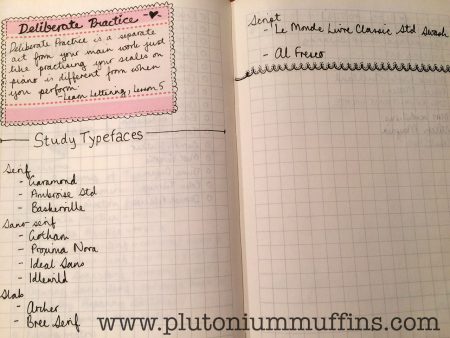 Deliberate Practice
Deliberate Practice is a separate
act from your main work just
like practising your scales on
piano is different from when
you perform.
- Learn Lettering, Lesson 5
Study Typefaces
Serif
- Garamond
- Ambroise Std
- Baskerville
Sans serif
- Gotham
- Proxima Nova
- Ideal Sans
- Idlewild
Slab
- Archer
- Bree Serif
Script
- Le Monde Livre Classic Std Swash
- Al Fresco
www.plutoniummuffins.com